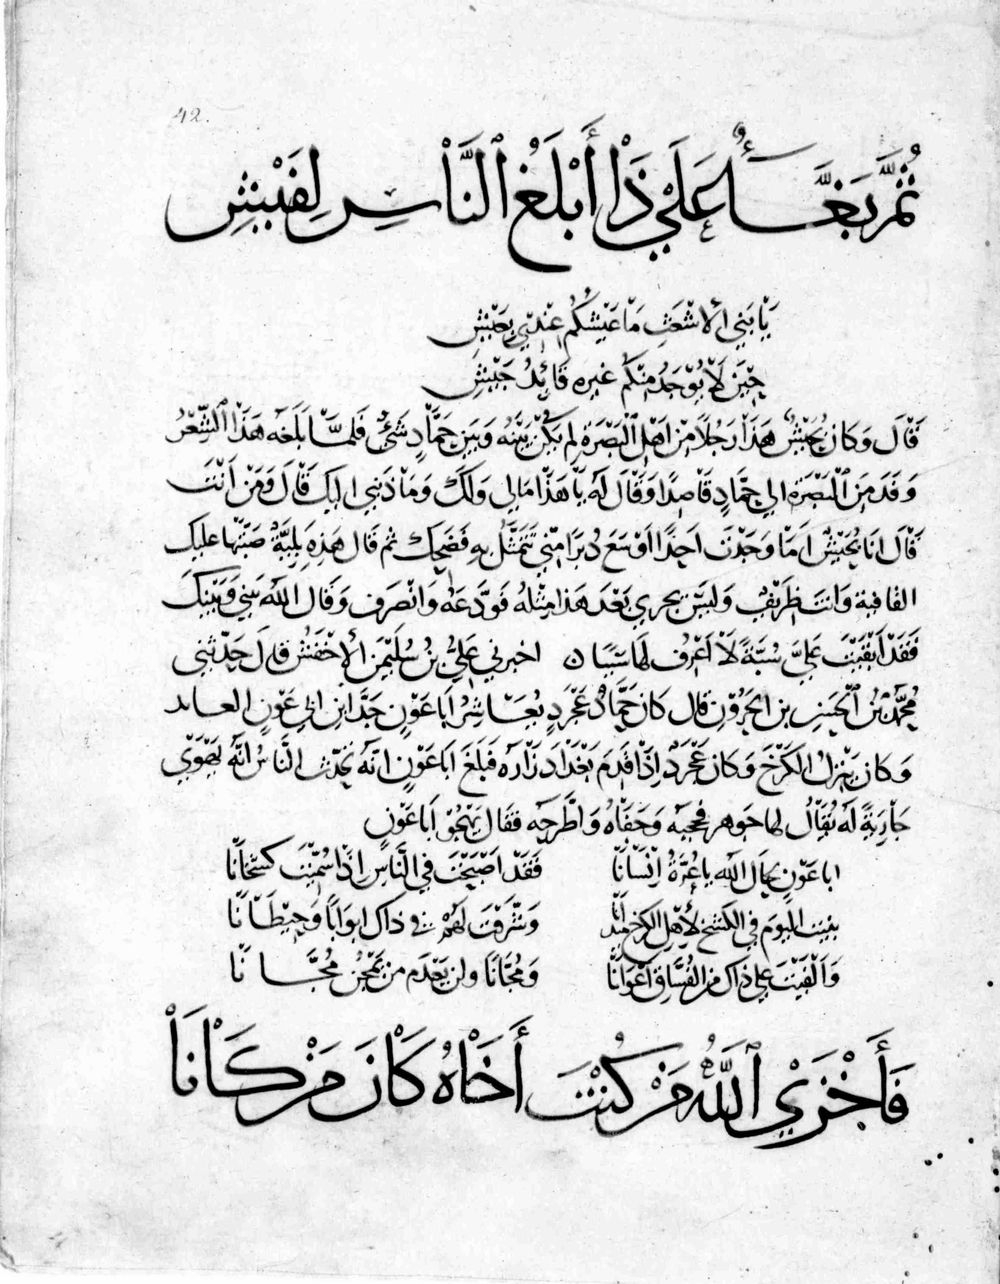 42.
ثُمَّ بَغَّاءٌ عَلَى ذَا أَبْلَغُ ٱلنَّاسِ لِفَيْشِ
يَا بَنِي الأَشْعَثِ مَا عَيْشُكُمُ عِنْدِي بِعَيْشِ
حِينَ لَا يُوْجَدُ مِنْكُمْ غيره قَائِدُ جَيْشِ
قَالَ وَكان بُحَيْشٌ هَذَا رَجُلًا مِنْ اهْلِ ٱلْبَصْرَةِ لم يَكُنْ بَيْنَهُ وَبَيْنَ حَمَّادٍ شَىْءٌ فَلمَّا بَلَغَه هَذَا ٱلشِّعْرُ
وَفَدَ مِنَ ٱلْبَصْرَةِ الى حَمَّادٍ قَاصِدًا وَقَالَ لَه يَا هَذَا مَا لِى وَلَكَ وَمَا ذَنبى اليك قَالَ وَمَنْ اَنْتَ
قَالَ انَا بُحَيْشٌ اَمَا وَجَدْتَ اَحَدًا اَوْسَعَ دُبرًا مِنِّي تَتَمَثَّلُ بِهِ فَضَحِكَ ثم قال هَذِهِ بَلِيَّةٌ صَبَّتْهَا عليك
القافية وَانتَ ظَرِيْفٌ وَلَيْسَ يجرى بَعْدَ هَذا مِثْلُهُ فَودَّعَهُ وَانْصَرف وَقال الله بَيْنى وَبَيْنَكَ
فَقَدْ أَبْقَيْتَ عَلَيَّ سُبَّةً لَا اَعْرِفُ لَهَا سَبَبًا ن اخبرنى عَلِيُّ بن سُلَيْمٰنَ الأَخْفَشُ قال حَدَّثَنِى
مُحَمَّدُ بْنُ ٱلْحَسَنِ بن الْحَرُوْنِ قال كان حَمَّادُ عَجْرَدٍ يُعَاشِرُ اَبَا عَوْنٍ جَدَّ ابن ابى عَوْنٍ العابد
وَكان يَنْزِلُ الكَرْخَ وَكان عَجْرَدٌ اِذَا قَدِمَ بَغْدَادَ زَارَه فَبَلَغَ ابا عَوْنٍ انّه يحَدِّث النَّاسُ انّه يَهْوَى
جَارِيَةً لَه يُقَالُ لها جَوهر فحجبَه وَجَفَاهُ وَاطَّرحَه فَقَال يَهْجُو اَبَا عَوْنٍ
ابا عَوْنٍ لِحَاكَ الله يا عُرَّةَ اِنْسَانَا فَقَدْ اَصْبَحْتَ في النَّاسِ اِذَا سُمِّيْتَ كَشْخَانَا
بنيت اليوم فى الكشخ لأهل الكرخ بُنْيَانَا وَشَرَّفْتَ لَهُمْ في ذاك ابوَابًا وَحِيْطَانَا
وَاَلْفَيْتَ عَلى ذَاكَ من الفُسَّاقِ اَعْوَانًا وَمُجَّانًا ولن يَعْدَم من يَمْجُن مُجَّانَا
فَأَخْزَى ٱللَّهُ مَنْ كُنْتَ أَخَاهُ كَانَ مَنْ كَانَا